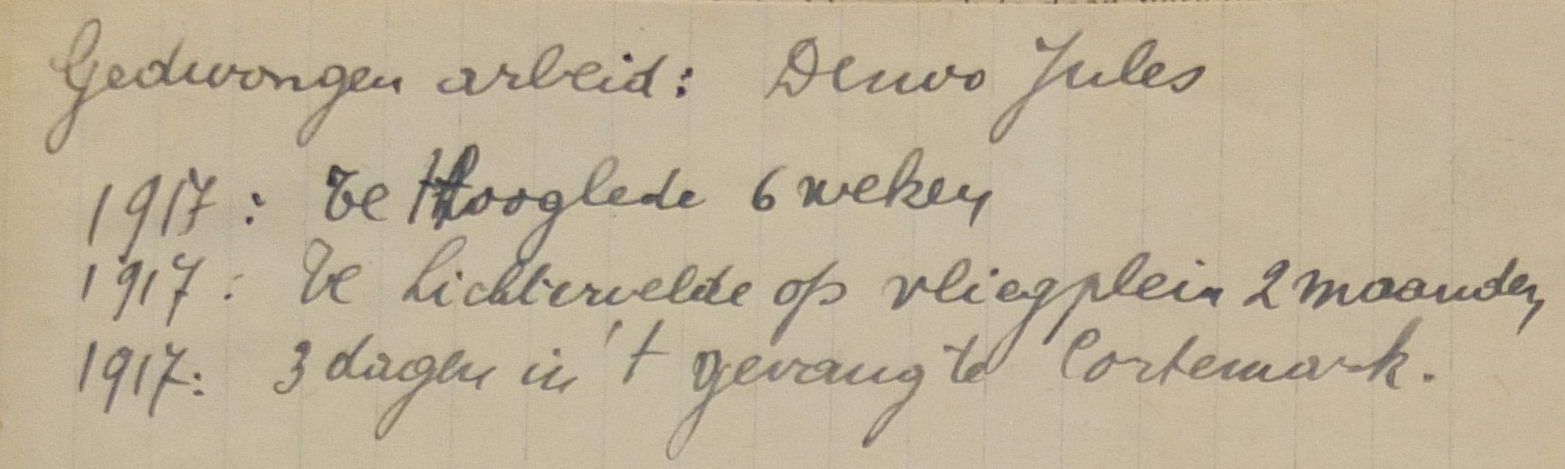 Gedwongen arbeid: Denvo Jules
1917: te Hooglede 6 weken
1917: te Lichtervelde op vliegplein 2 maanden
1917: 3 dagen in 't gevang te Cortemark.